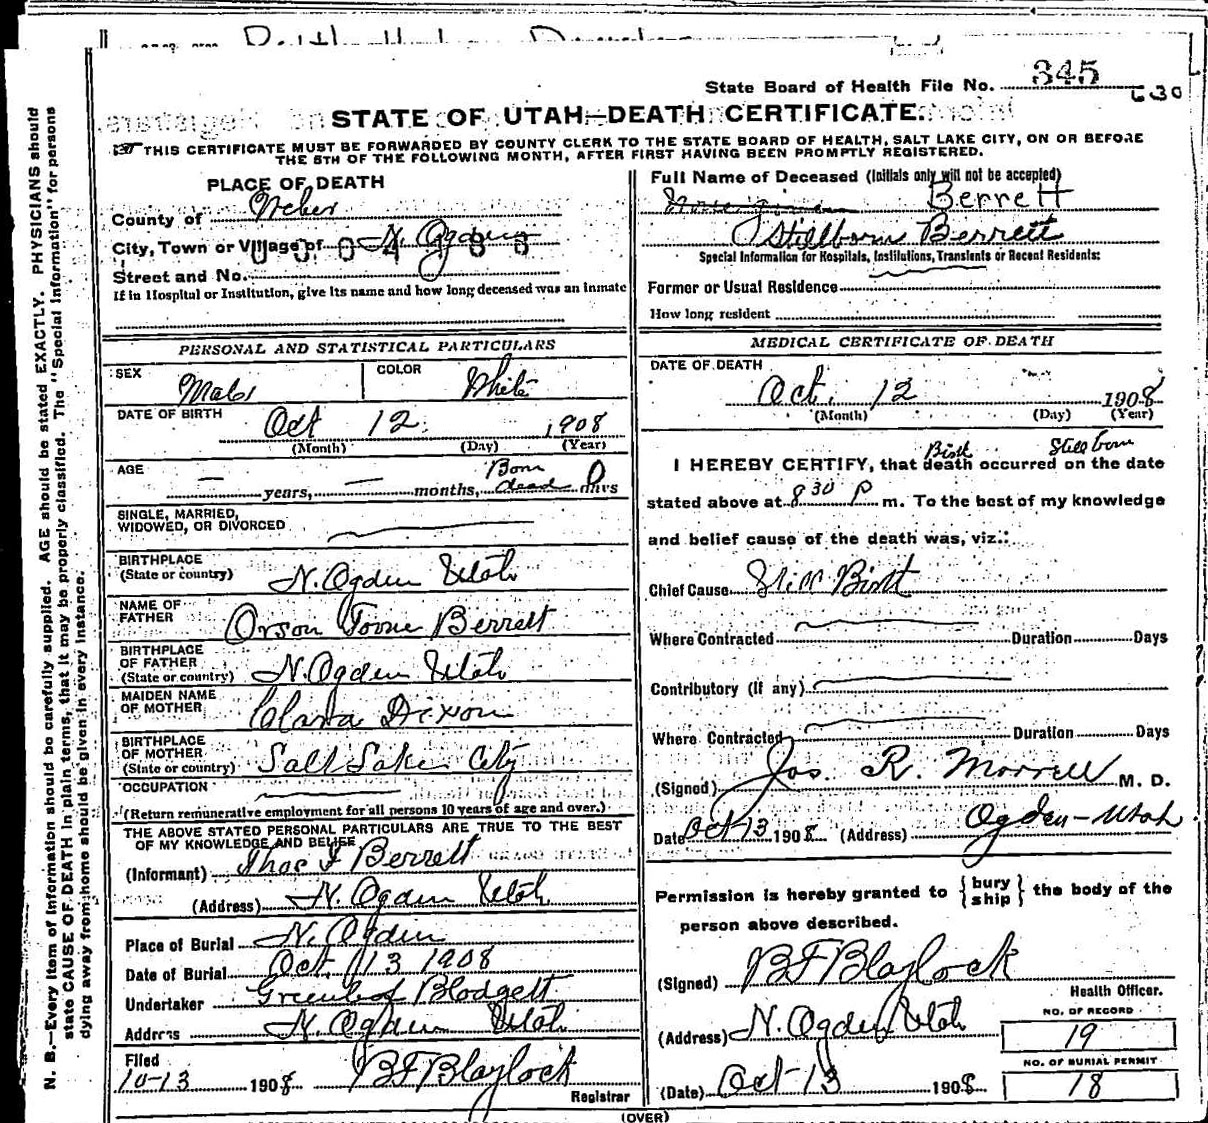 State Board of Health File No. 345
630
STATE OF UTAH—DEATH CERTIFICATE.
THIS CERTIFICATE MUST BE FORWARDED BY COUNTY CLERK TO THE STATE BOARD OF HEALTH, SALT LAKE CITY, ON OR BEFORE
THE 5TH OF THE FOLLOWING MONTH, AFTER FIRST HAVING BEEN PROMPTLY REGISTERED.
N. B.—Every item of information should be carefully supplied. AGE should be stated EXACTLY. PHYSICIANS should
state CAUSE OF DEATH in plain terms, that it may be properly classified. The "Special Information" for persons
dying away from home should be given in every instance.
PLACE OF DEATH
County of Weber
City, Town or Village of N. Ogden
Street and No.
If in Hospital or Institution, give its name and how long deceased was an inmate
PERSONAL AND STATISTICAL PARTICULARS
SEX Male COLOR White
DATE OF BIRTH Oct 12 1908
(Month) (Day) (Year)
AGE — years, — months, Born dead days
SINGLE, MARRIED,
WIDOWED, OR DIVORCED
BIRTHPLACE
(State or country) N. Ogden Utah
NAME OF
FATHER Orson Toone Berrett
BIRTHPLACE
OF FATHER
(State or country) N. Ogden Utah
MAIDEN NAME
OF MOTHER Clara Dixon
BIRTHPLACE
OF MOTHER
(State or country) Salt Lake City
OCCUPATION
(Return remunerative employment for all persons 10 years of age and over.)
THE ABOVE STATED PERSONAL PARTICULARS ARE TRUE TO THE BEST
OF MY KNOWLEDGE AND BELIEF
(Informant) Thos J Berrett
(Address) N. Ogden Utah
Place of Burial N. Ogden
Date of Burial Oct. 13 1908
Undertaker Greenleaf Blodgett
Address N. Ogden Utah
Filed
10-13 1908 BF Blaylock
Registrar
Full Name of Deceased (Initials only will not be accepted)
Berrett
Stillborn Berrett
Special Information for Hospitals, Institutions, Transients or Recent Residents:
Former or Usual Residence
How long resident
MEDICAL CERTIFICATE OF DEATH
DATE OF DEATH
Oct. 12 1908
(Month) (Day) (Year)
Birth Still born
I HEREBY CERTIFY, that death occurred on the date
stated above at 8 30 P m. To the best of my knowledge
and belief cause of the death was, viz.:
Chief Cause Still Birth
Where Contracted Duration Days
Contributory (If any)
Where Contracted Duration Days
(Signed) Jos. R. Morrell M. D.
Date Oct 13 1908 (Address) Ogden-Utah
Permission is hereby granted to {bury ship} the body of the
person above described.
(Signed) BF Blaylock
Health Officer.
(Address) N. Ogden Utah
NO. OF RECORD
19
NO. OF BURIAL PERMIT
18
(Date) Oct-13 1908
(OVER)